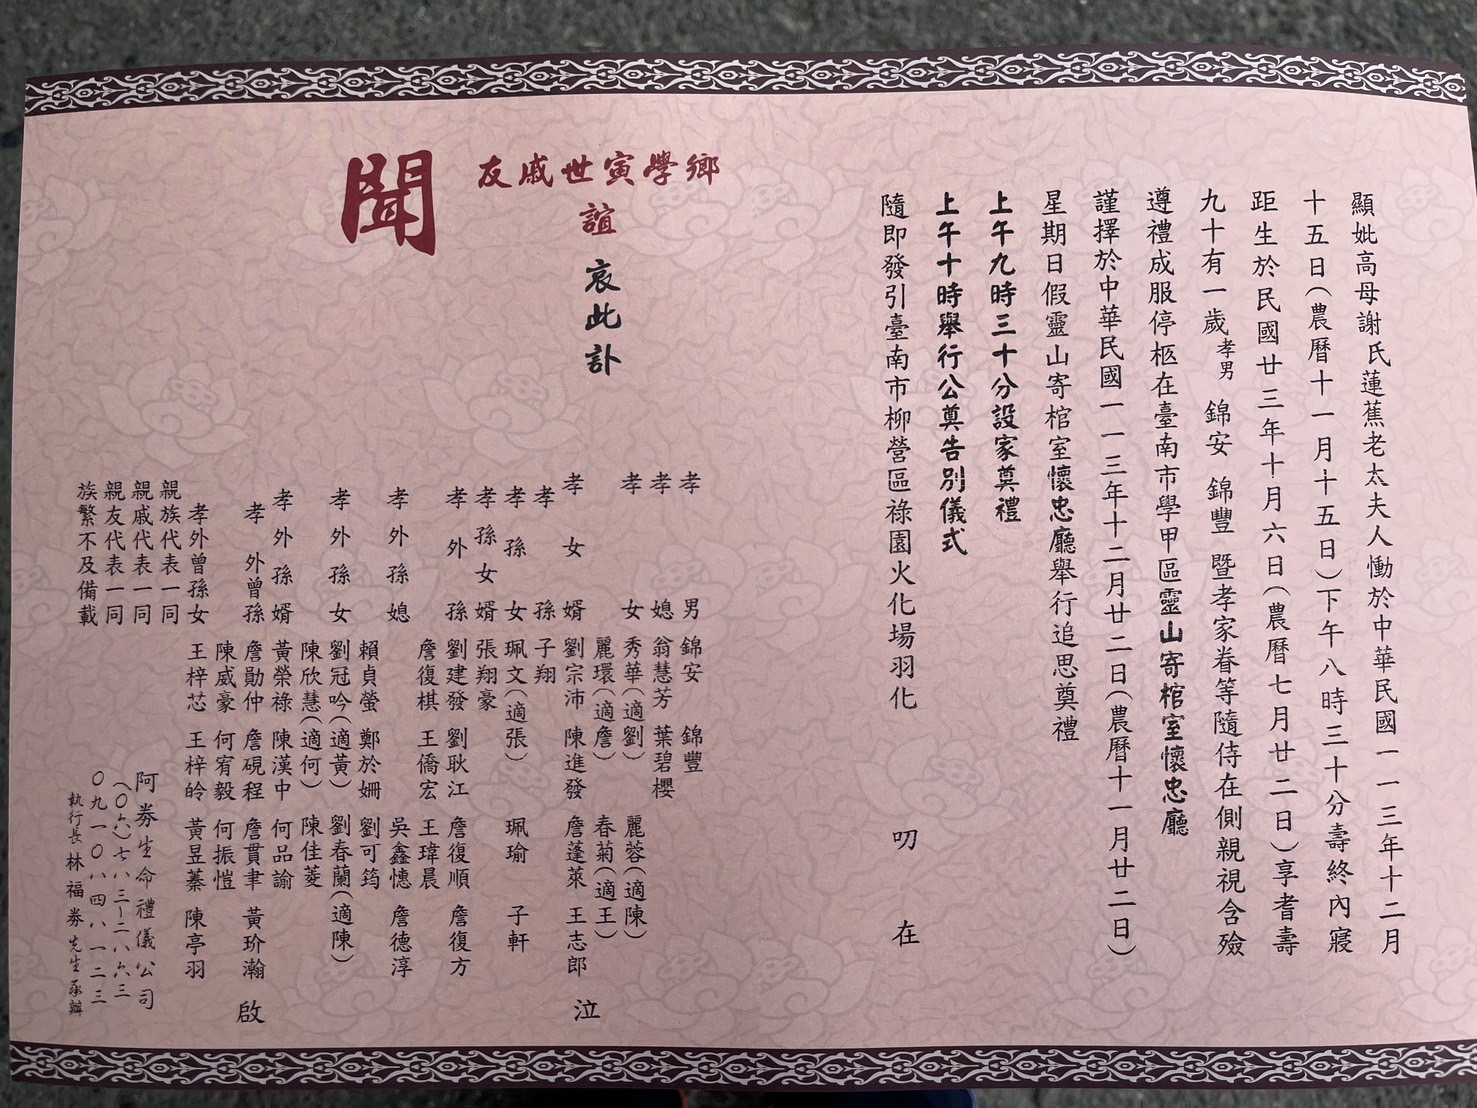 顯妣高母謝氏蓮蕉老太夫人慟於中華民國一一三年十二月
十五日(農曆十一月十五日)下午八時三十分壽終內寢
距生於民國廿三年十月六日(農曆七月廿二日)享耆壽
九十有一歲孝男 錦安 錦豐 暨孝家眷等隨侍在側親視含殮
遵禮成服停柩在臺南市學甲區靈山寄棺室懷忠廳
謹擇於中華民國一一三年十二月廿二日(農曆十一月廿二日)
星期日假靈山寄棺室懷忠廳舉行追思奠禮
上午九時三十分設家奠禮
上午十時舉行公奠告別儀式
隨即發引臺南市柳營區祿園火化場羽化 叨 在
鄉學寅世戚友
誼
哀此訃
聞
孝男 錦安 錦豐
孝媳 翁慧芳 葉碧櫻
孝女 秀華(適劉) 麗蓉(適陳)
麗環(適詹) 春菊(適王)
孝女婿 劉宗沛 陳進發 詹蓬萊 王志郎 泣
孝孫 子翔 子軒
孝孫女 珮文(適張) 珮瑜
孝孫女婿 張翔豪
孝外孫 劉建發 劉耿江 詹復順 詹復方
詹復棋 王僑宏 王瑋晨
孝外孫媳 吳鑫憓 詹德淳
賴貞螢 鄭於姍 劉可筠
孝外孫女 劉冠吟(適黃) 劉春蘭(適陳)
陳欣慧(適何) 陳佳菱
孝外孫婿 黃榮祿 陳漢中 何品諭
孝外曾孫 詹勛仲 詹硯程 詹貫聿 黃玠瀚 啟
陳威豪 何宥毅 何振愷
孝外曾孫女 王梓芯 王梓皊 黃昱蓁 陳亭羽
親族代表一同
親戚代表一同
親友代表一同
族繁不及備載
阿劵生命禮儀公司
(〇六)七八三-二八六三
〇九一〇八四八一二三
執行長林福劵先生承辦